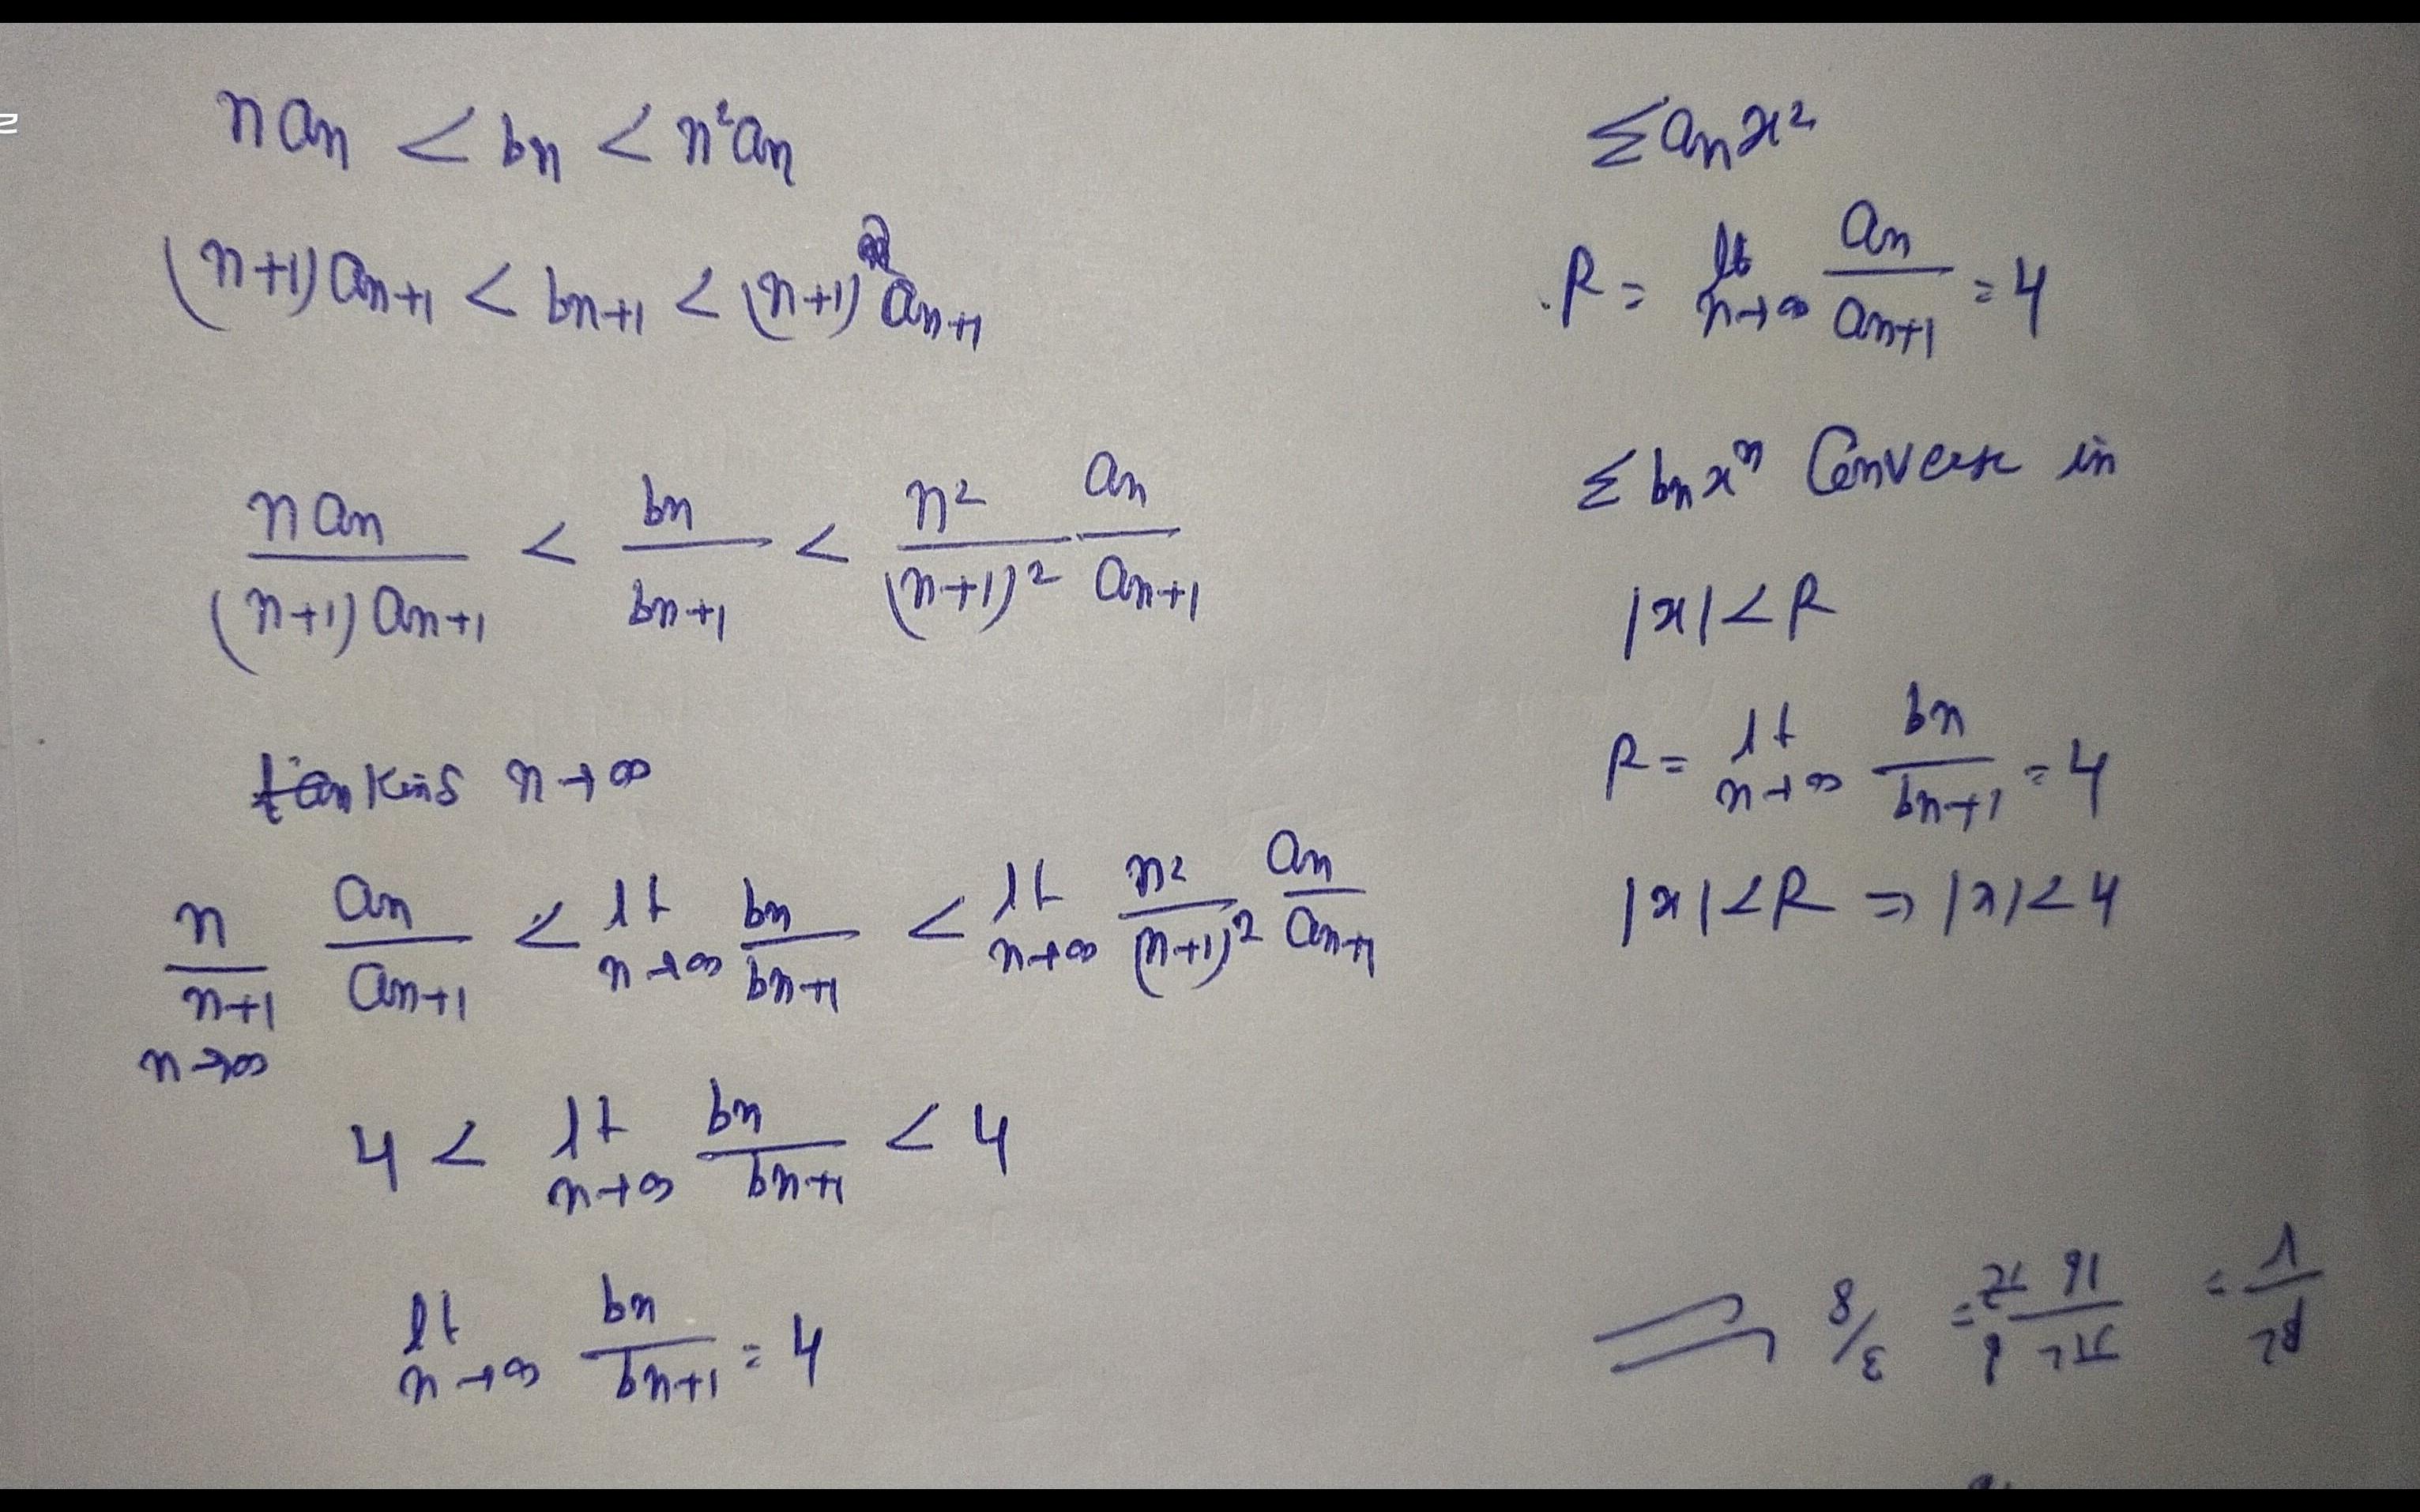 n an < bn < n²an
(n+1) an+1 < bn+1 < (n+1)² an+1
n an / (n+1) an+1 < bn / bn+1 < n² / (n+1)² an / an+1
n→∞
n / n+1 n→∞ an / an+1 < lt n→∞ bn / bn+1 < lt n→∞ n² / (n+1)² an / an+1
4 < lt n→∞ bn / bn+1 < 4
lt n→∞ bn / bn+1 = 4
Σ an x²
R = lt n→∞ an / an+1 = 4
Σ bn xⁿ Converse in
|x| < R
R = lt n→∞ bn / bn+1 = 4
|x| < R ⇒ |x| < 4